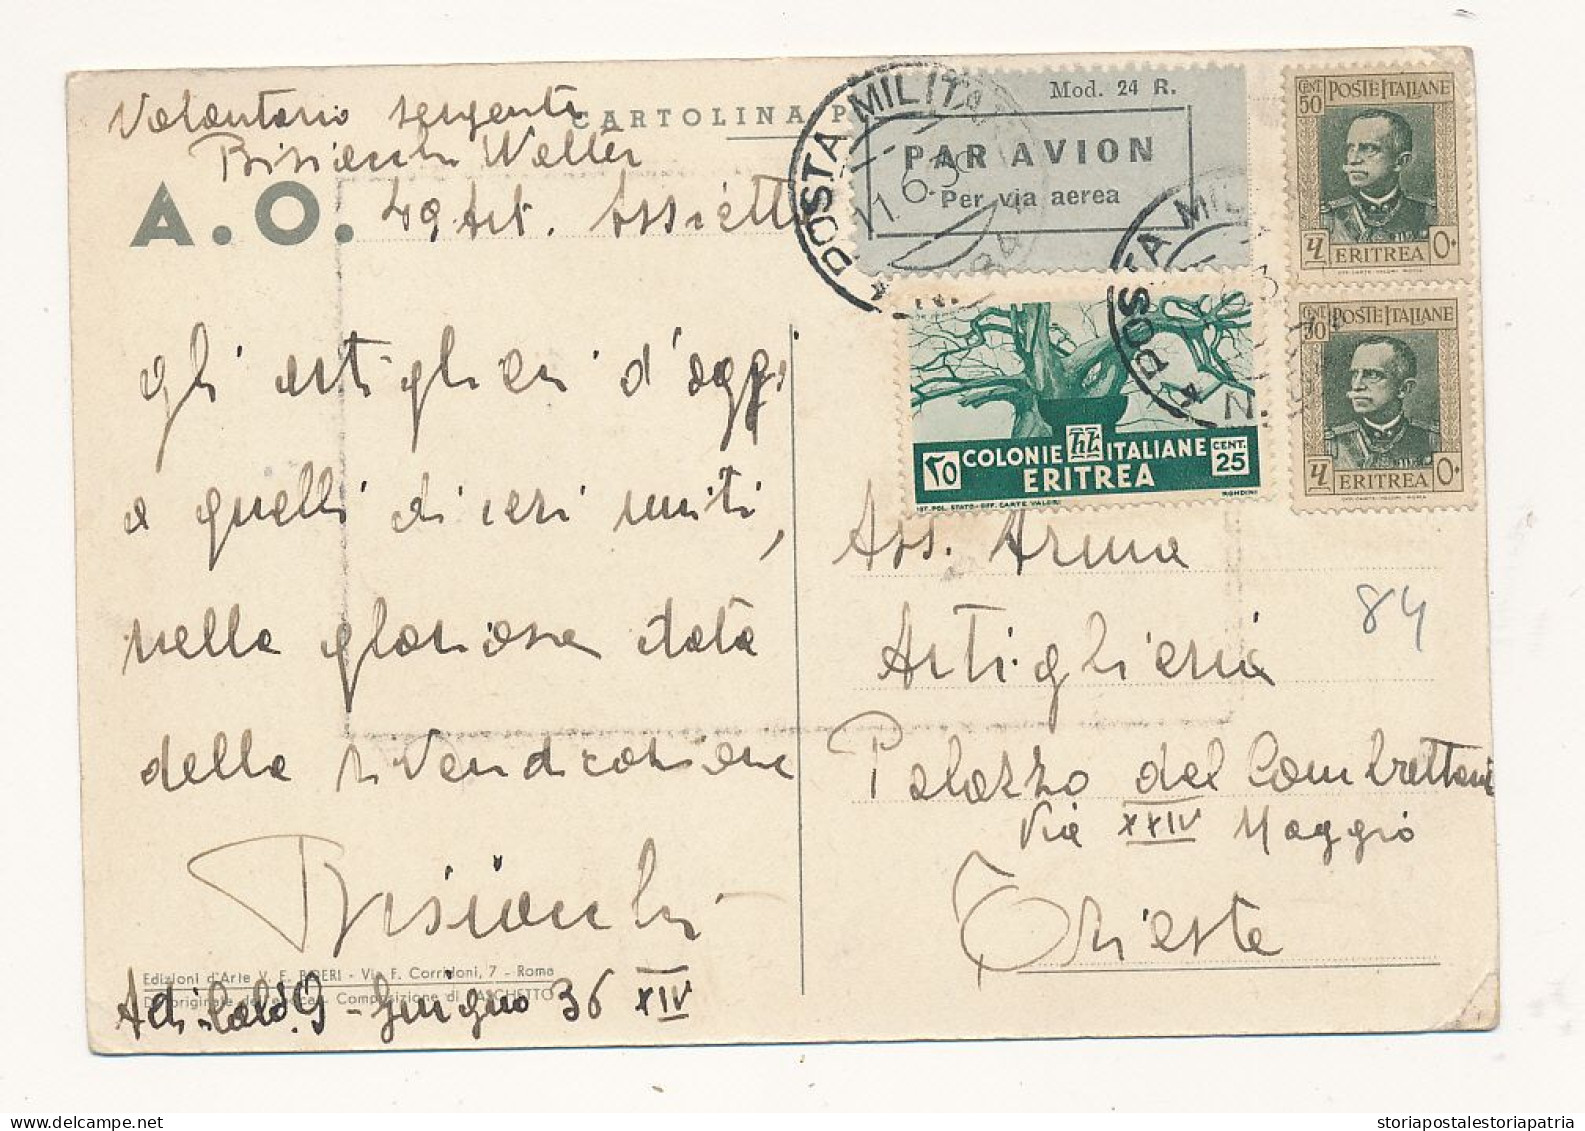 Volontario sergente
CARTOLINA P
Walter
A.O.
49 Art. Assietta
POSTA MILITA
11.6.36
Mod. 24 R.
PAR AVION
Per via aerea
CENT 50 POSTE ITALIANE
ERITREA
CENT 50 POSTE ITALIANE
ERITREA
POSTA MIL
COLONIE ITALIANE
ERITREA
CENT. 25
٢٥
IST. POL. STATO - OFF. CARTE VALORI
MONDINI
gli artiglieri d'oggi
a quelli di ieri uniti,
nella gloriosa data
della rivendicazione
Ass. Arma
Artiglieria
84
Palazzo del Combattente
Via XXIV Maggio
Trieste
Edizioni d'Arte V. E. BOERI - Via F. Corridoni, 7 - Roma
Composizione di PASCHETTO
9 - Giugno 36 XIV
storiapostalestoriapatria